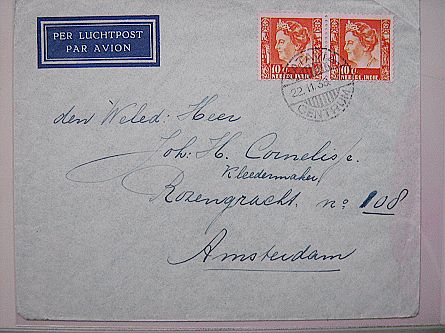 PER LUCHTPOST
PAR AVION
10 c
NED. INDIË
10 c
NED. INDIË
22.11.35
CENTRUM
den Weled: Heer
Joh: H. Cornelisse
Kleedermaker
Rozengracht. no 108
Amsterdam